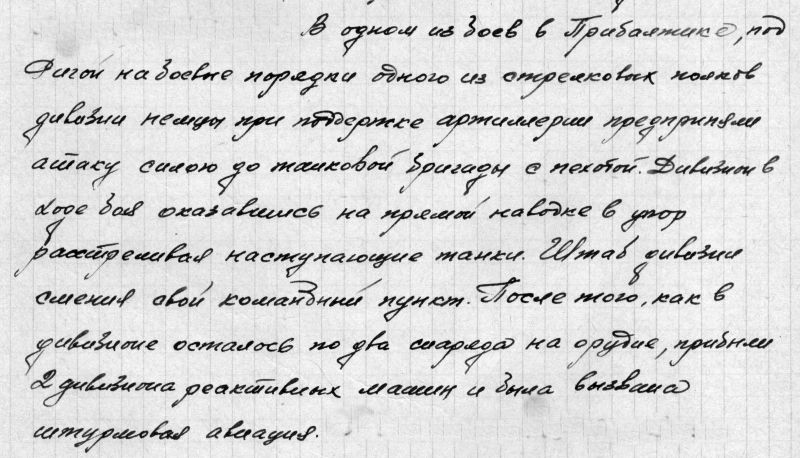 В одном из боев в Прибалтике, под
Ригой на боевые порядки одного из стрелковых полков
дивизии немцы при поддержке артиллерии предприняли
атаку силою до танковой бригады с пехотой. Дивизион в
ходе боя оказавшись на прямой наводке в упор
расстреливал наступающие танки. Штаб дивизии
сменил свой командный пункт. После того, как в
дивизионе осталось по два снаряда на орудие, прибыли
2 дивизиона реактивных машин и была вызвана
штурмовая авиация.